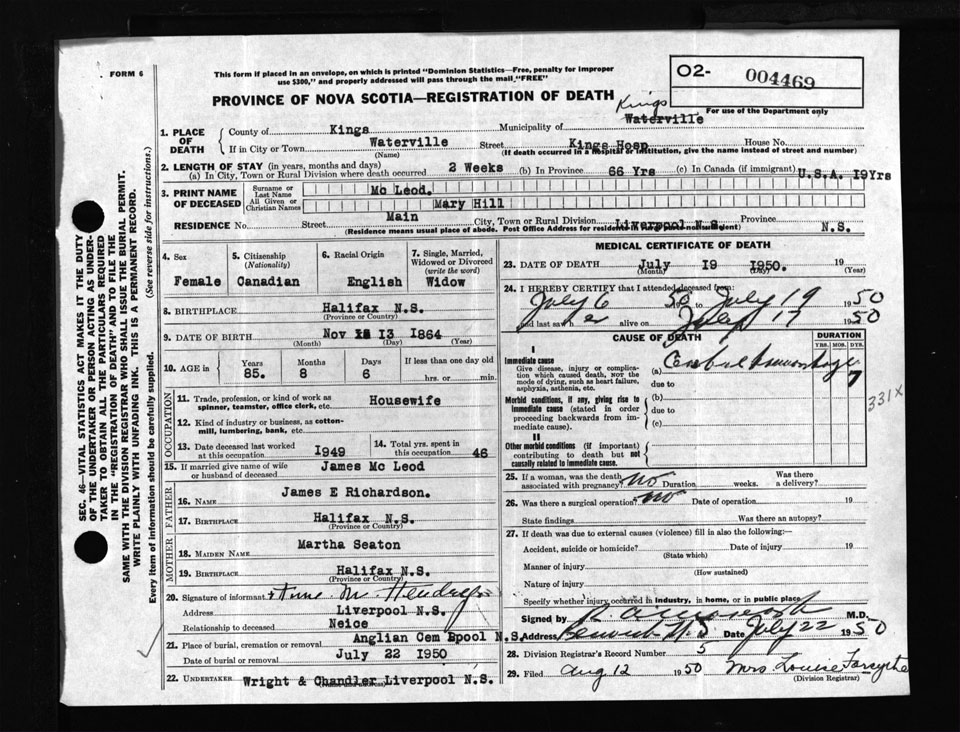 FORM 6
This form if placed in an envelope, on which is printed "Dominion Statistics—Free, penalty for improper
use $300," and properly addressed will pass through the mail "FREE"
O2- 004469
For use of the Department only
PROVINCE OF NOVA SCOTIA—REGISTRATION OF DEATH
Kings
1. PLACE OF DEATH County of Kings Municipality of Waterville
If in City or Town Waterville Street Kings Hosp House No.
(Name) (If death occurred in a hospital or institution, give the name instead of street and number)
2. LENGTH OF STAY (in years, months and days)
(a) In City, Town or Rural Division where death occurred 2 Weeks (b) In Province 66 Yrs (c) In Canada (if immigrant) U.S.A. I9Yrs
3. PRINT NAME OF DECEASED Surname or Last Name Mc Leod.
All Given or Christian Names Mary Hill
RESIDENCE No. Street Main City, Town or Rural Division Liverpool N.S. Province N.S.
(Residence means usual place of abode. Post Office Address for residence in rural parts not sufficient)
4. Sex Female
5. Citizenship (Nationality) Canadian
6. Racial Origin English
7. Single, Married, Widowed or Divorced (write the word) Widow
8. BIRTHPLACE Halifax N.S.
(Province or Country)
9. DATE OF BIRTH Nov I3 I864
(Month) (Day) (Year)
10. AGE in Years 85. Months 8 Days 6 If less than one day old hrs. or min.
OCCUPATION
11. Trade, profession, or kind of work as spinner, teamster, office clerk, etc. Housewife
12. Kind of industry or business, as cotton-mill, lumbering, bank, etc.
13. Date deceased last worked at this occupation I949
14. Total yrs. spent in this occupation 46
15. If married give name of wife or husband of deceased James Mc Leod
FATHER
16. NAME James E Richardson.
17. BIRTHPLACE Halifax N.S.
(Province or Country)
MOTHER
18. MAIDEN NAME Martha Seaton
19. BIRTHPLACE Halifax N.S.
(Province or Country)
20. Signature of informant
Address Liverpool N.S.
Relationship to deceased Neice
21. Place of burial, cremation or removal Anglian Cem Lpool N.S.
Date of burial or removal July 22 I950
22. UNDERTAKER Wright & Chandler Liverpool N.S.
MEDICAL CERTIFICATE OF DEATH
23. DATE OF DEATH July I9 I950. 19
(Month) (Day) (Year)
24. I HEREBY CERTIFY that I attended deceased from:
July 6 50 to July 19 1950
and last saw her alive on July 17 1950
CAUSE OF DEATH
DURATION
YRS. MOS. DYS.
I
Immediate cause
Give disease, injury or complication which caused death, NOR the mode of dying, such as heart failure, asphyxia, asthenia, etc.
(a) Cerebral Haemorrhage 7
due to
Morbid conditions, if any, giving rise to immediate cause (stated in order proceeding backwards from immediate cause).
(b)
due to
(c)
II
Other morbid conditions (if important) contributing to death but not causally related to immediate cause.
331X
25. If a woman, was the death associated with pregnancy? No Duration weeks. Was there a delivery?
26. Was there a surgical operation? No Date of operation 19
State findings Was there an autopsy?
27. If death was due to external causes (violence) fill in also the following:—
Accident, suicide or homicide? Date of injury 19
(State which)
Manner of injury
(How sustained)
Nature of injury
Specify whether injury occurred in industry, in home, or in public place
Signed by M.D.
Address Berwick N.S Date July 22 1950
28. Division Registrar's Record Number 5
29. Filed Aug 12 1950 Mrs Louise Forsythe
(Division Registrar)
SEC. 46—VITAL STATISTICS ACT MAKES IT THE DUTY
OF THE UNDERTAKER OR PERSON ACTING AS UNDER-
TAKER TO OBTAIN ALL THE PARTICULARS REQUIRED
IN THE "REGISTRATION OF DEATH" AND TO FILE THE
SAME WITH THE DIVISION REGISTRAR WHO SHALL ISSUE THE BURIAL PERMIT.
WRITE PLAINLY WITH UNFADING INK. THIS IS A PERMANENT RECORD.
Every item of information should be carefully supplied. (See reverse side for instructions.)